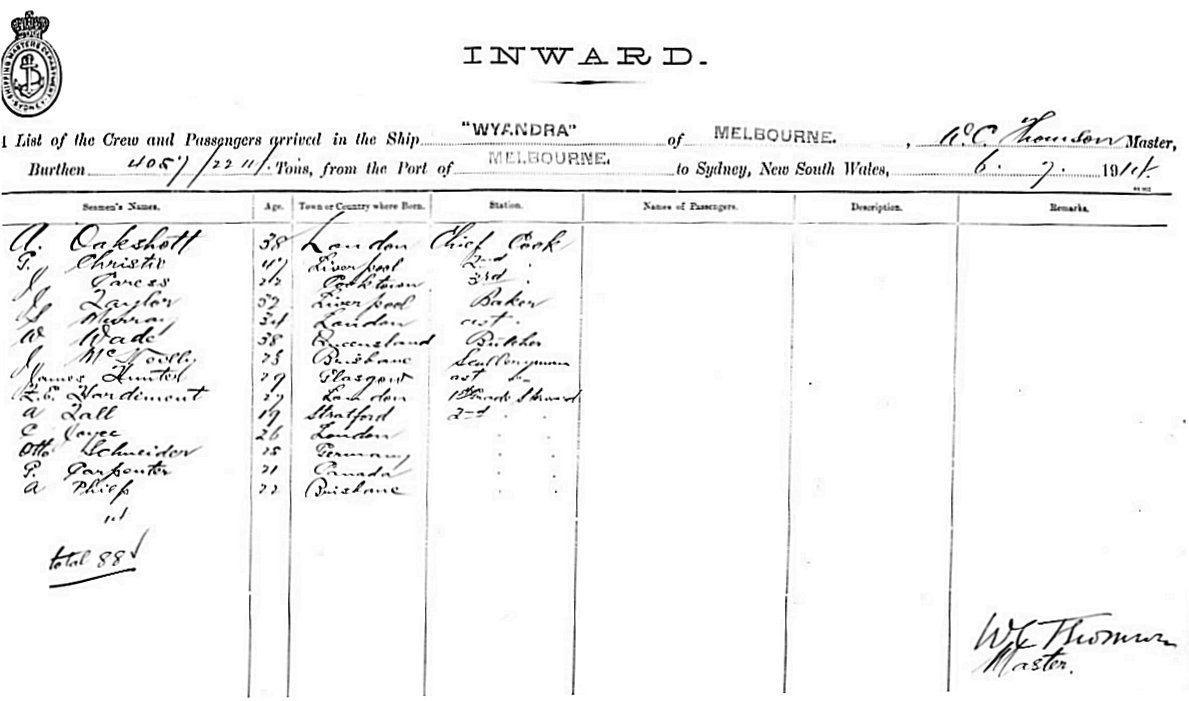 SHIPPING MASTERS DEPARTMENT SYDNEY
INWARD.
List of the Crew and Passengers arrived in the Ship "WYANDRA" of MELBOURNE. , W. C. Thomson Master,
Burthen 4057/2211 Tons, from the Port of MELBOURNE. to Sydney, New South Wales, 6. 7. 1914
Seamen's Names. Age. Town or Country where Born. Station. Names of Passengers. Description. Remarks.
A. Oakshott 38 London Chief Cook
G. Christie 47 Liverpool 2nd
J 22 Cooktown 3rd
J Taylor 52 Liverpool Baker
S Murray 34 London ast
W Wade 38 Queensland Butcher
J 23 Brisbane Sculleryman
James Hunter 29 Glasgow ast
Z.E. Wardiment 27 London 1st Grade Steward
A 19 Stratford 2nd
C Joyce 26 London
Otto Schneider 25 Germany
G. Carpenter 21 Canada
A 22 Brisbane
14
total 88
W C Thomson
Master.